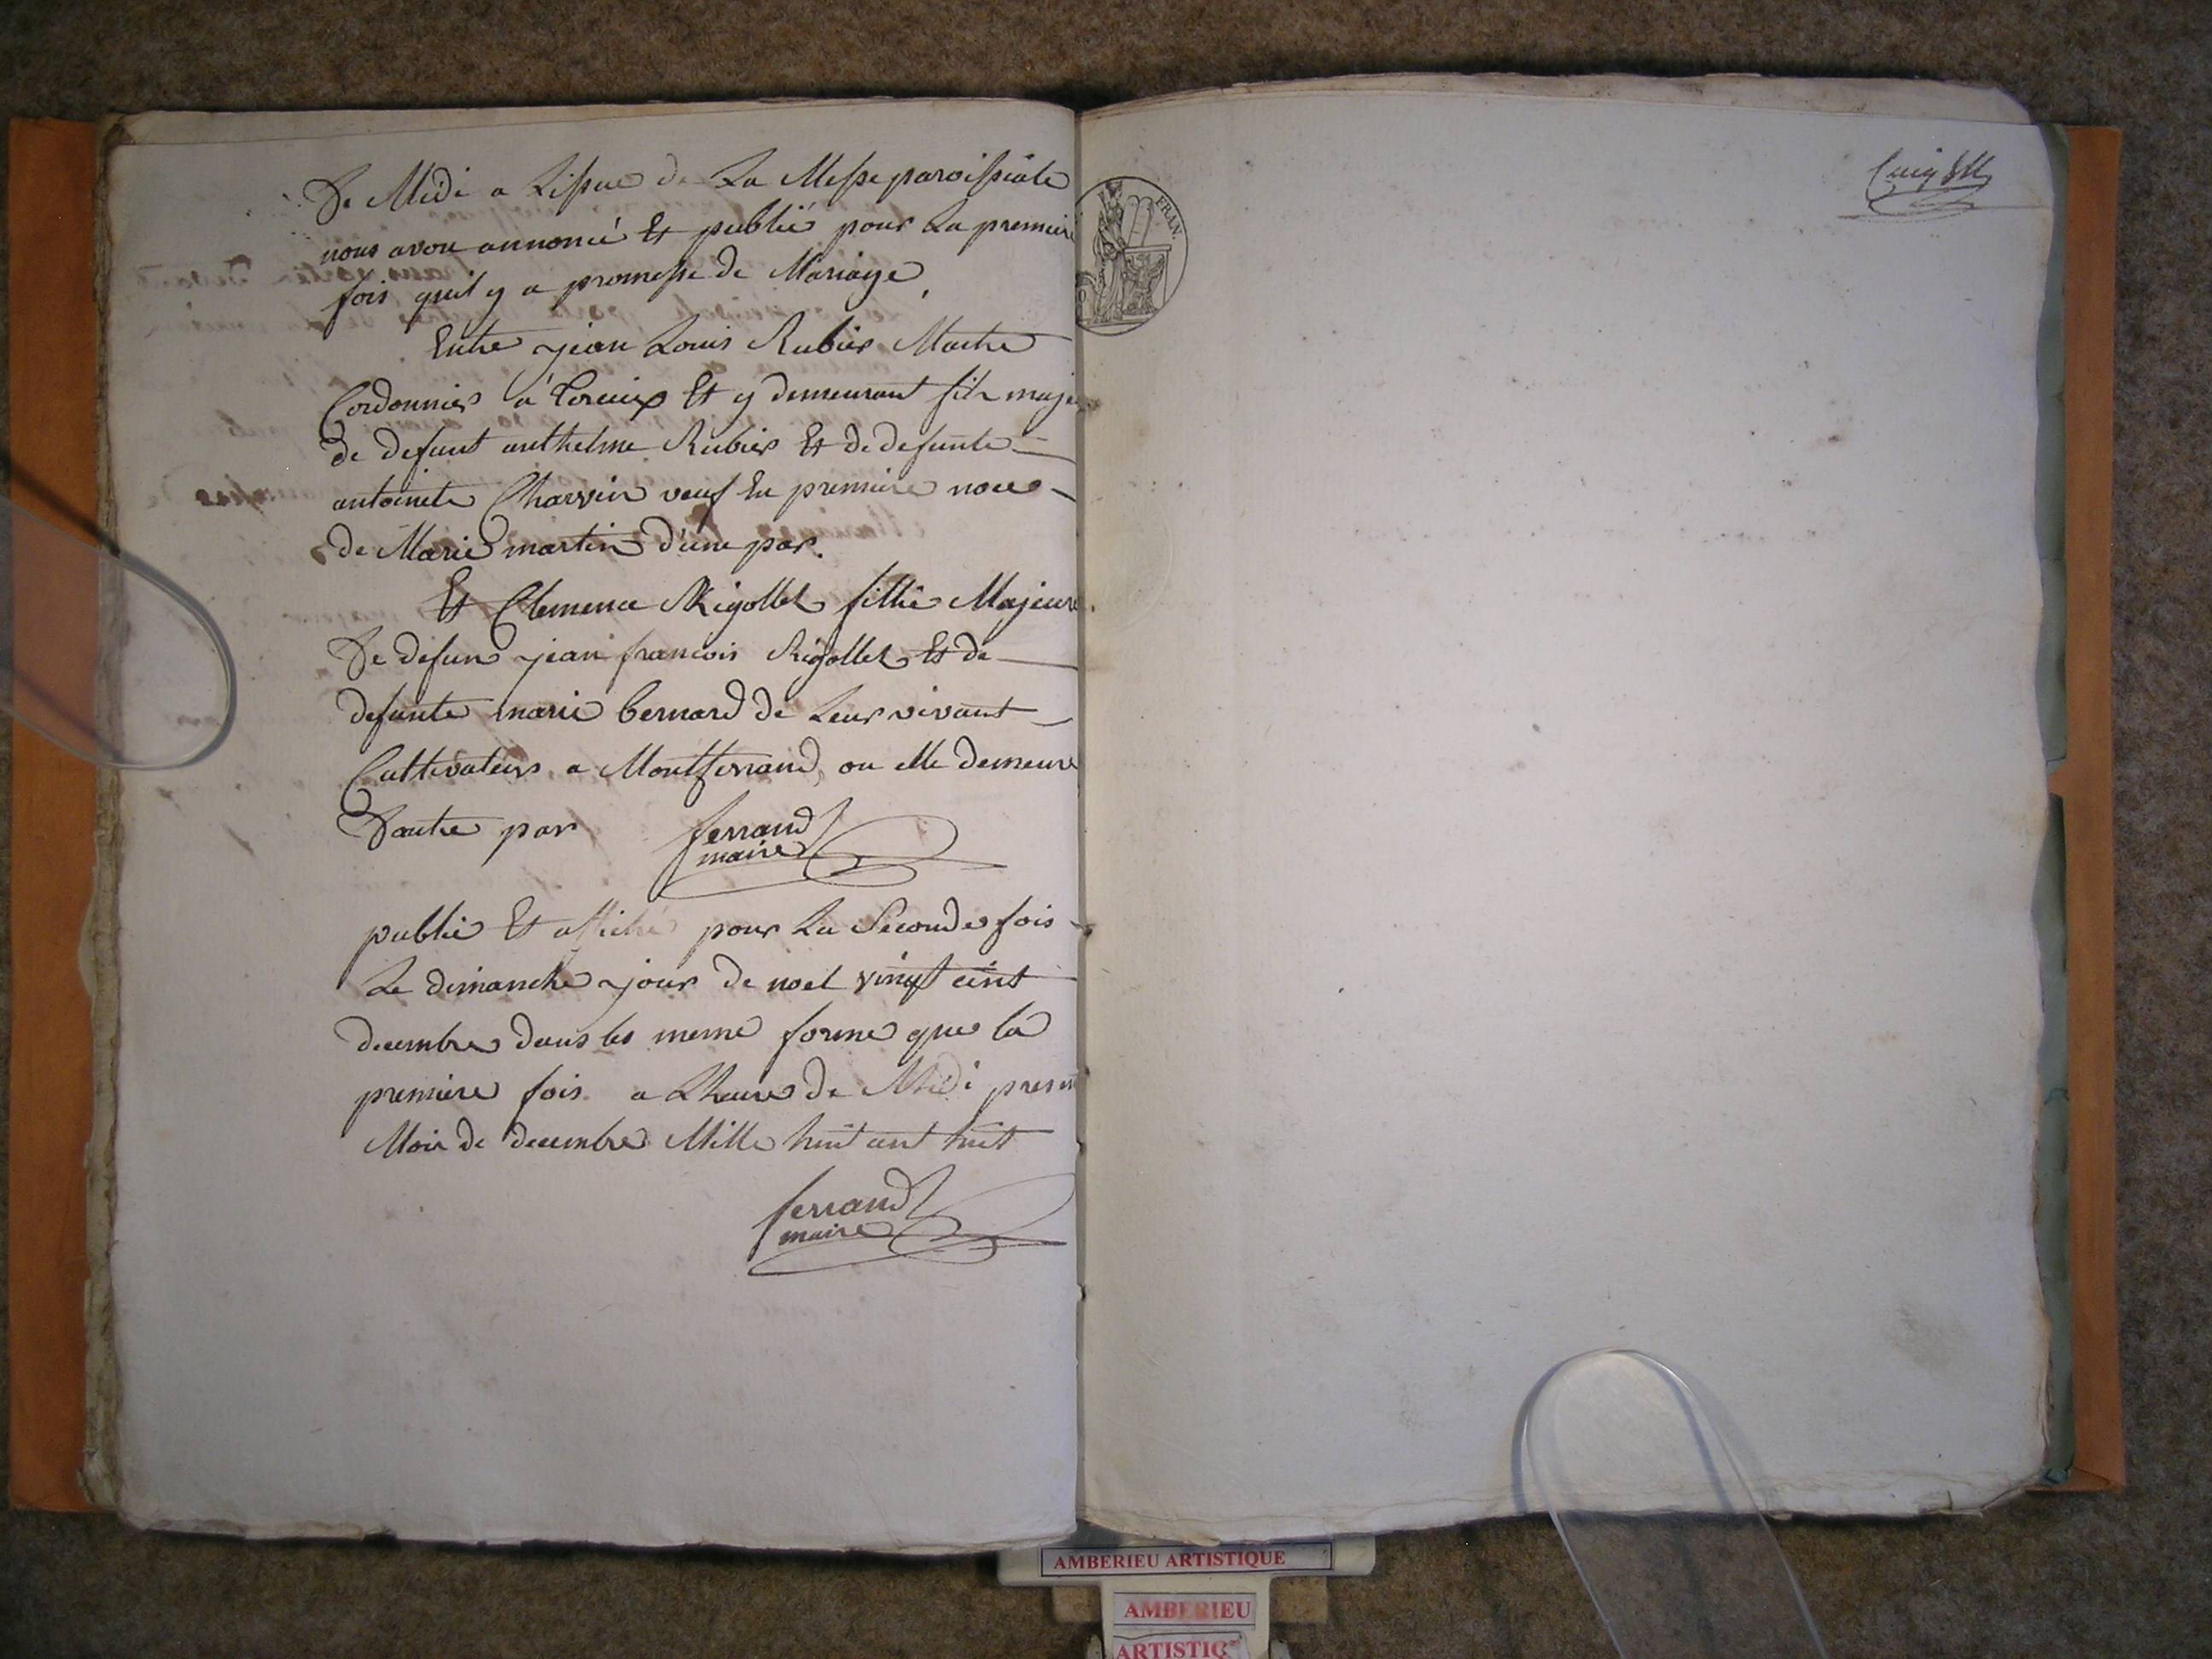 De Midi a Lissue de La Messe paroissiale
nous avon annoncé Et publié pour La premiere
fois quil y a promesse de Mariage
Entre jean Louis Rubier Maitre
Cordonnier a Et y demeurant fils maje
de defunt anthelme Rubier Et de defunte
antoinete Charvin veuf En premiere noce
de Marie martin d'une par.
Et Clemence Rigollet fillie Majeure
De defun jean francois Rigollet Et de
defunte marie bernard de Leur vivant
Cultivateurs a Montferrand, ou elle demeure
D'autre par ferrand
maire
publié Et affiché pour La Seconde fois
Le dimanche jour de noel vingt cint
decembre dans les meme forme que la
premiere fois a Lheure de Midi presen
Mois de decembre Mille huit cent huit
ferrand
maire
FRAN.
AMBERIEU ARTISTIQUE
AMBERIEU
ARTISTIQ